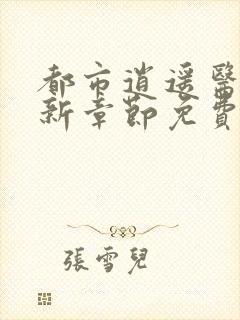 都市逍遥醫
新章節免費
張雪兒